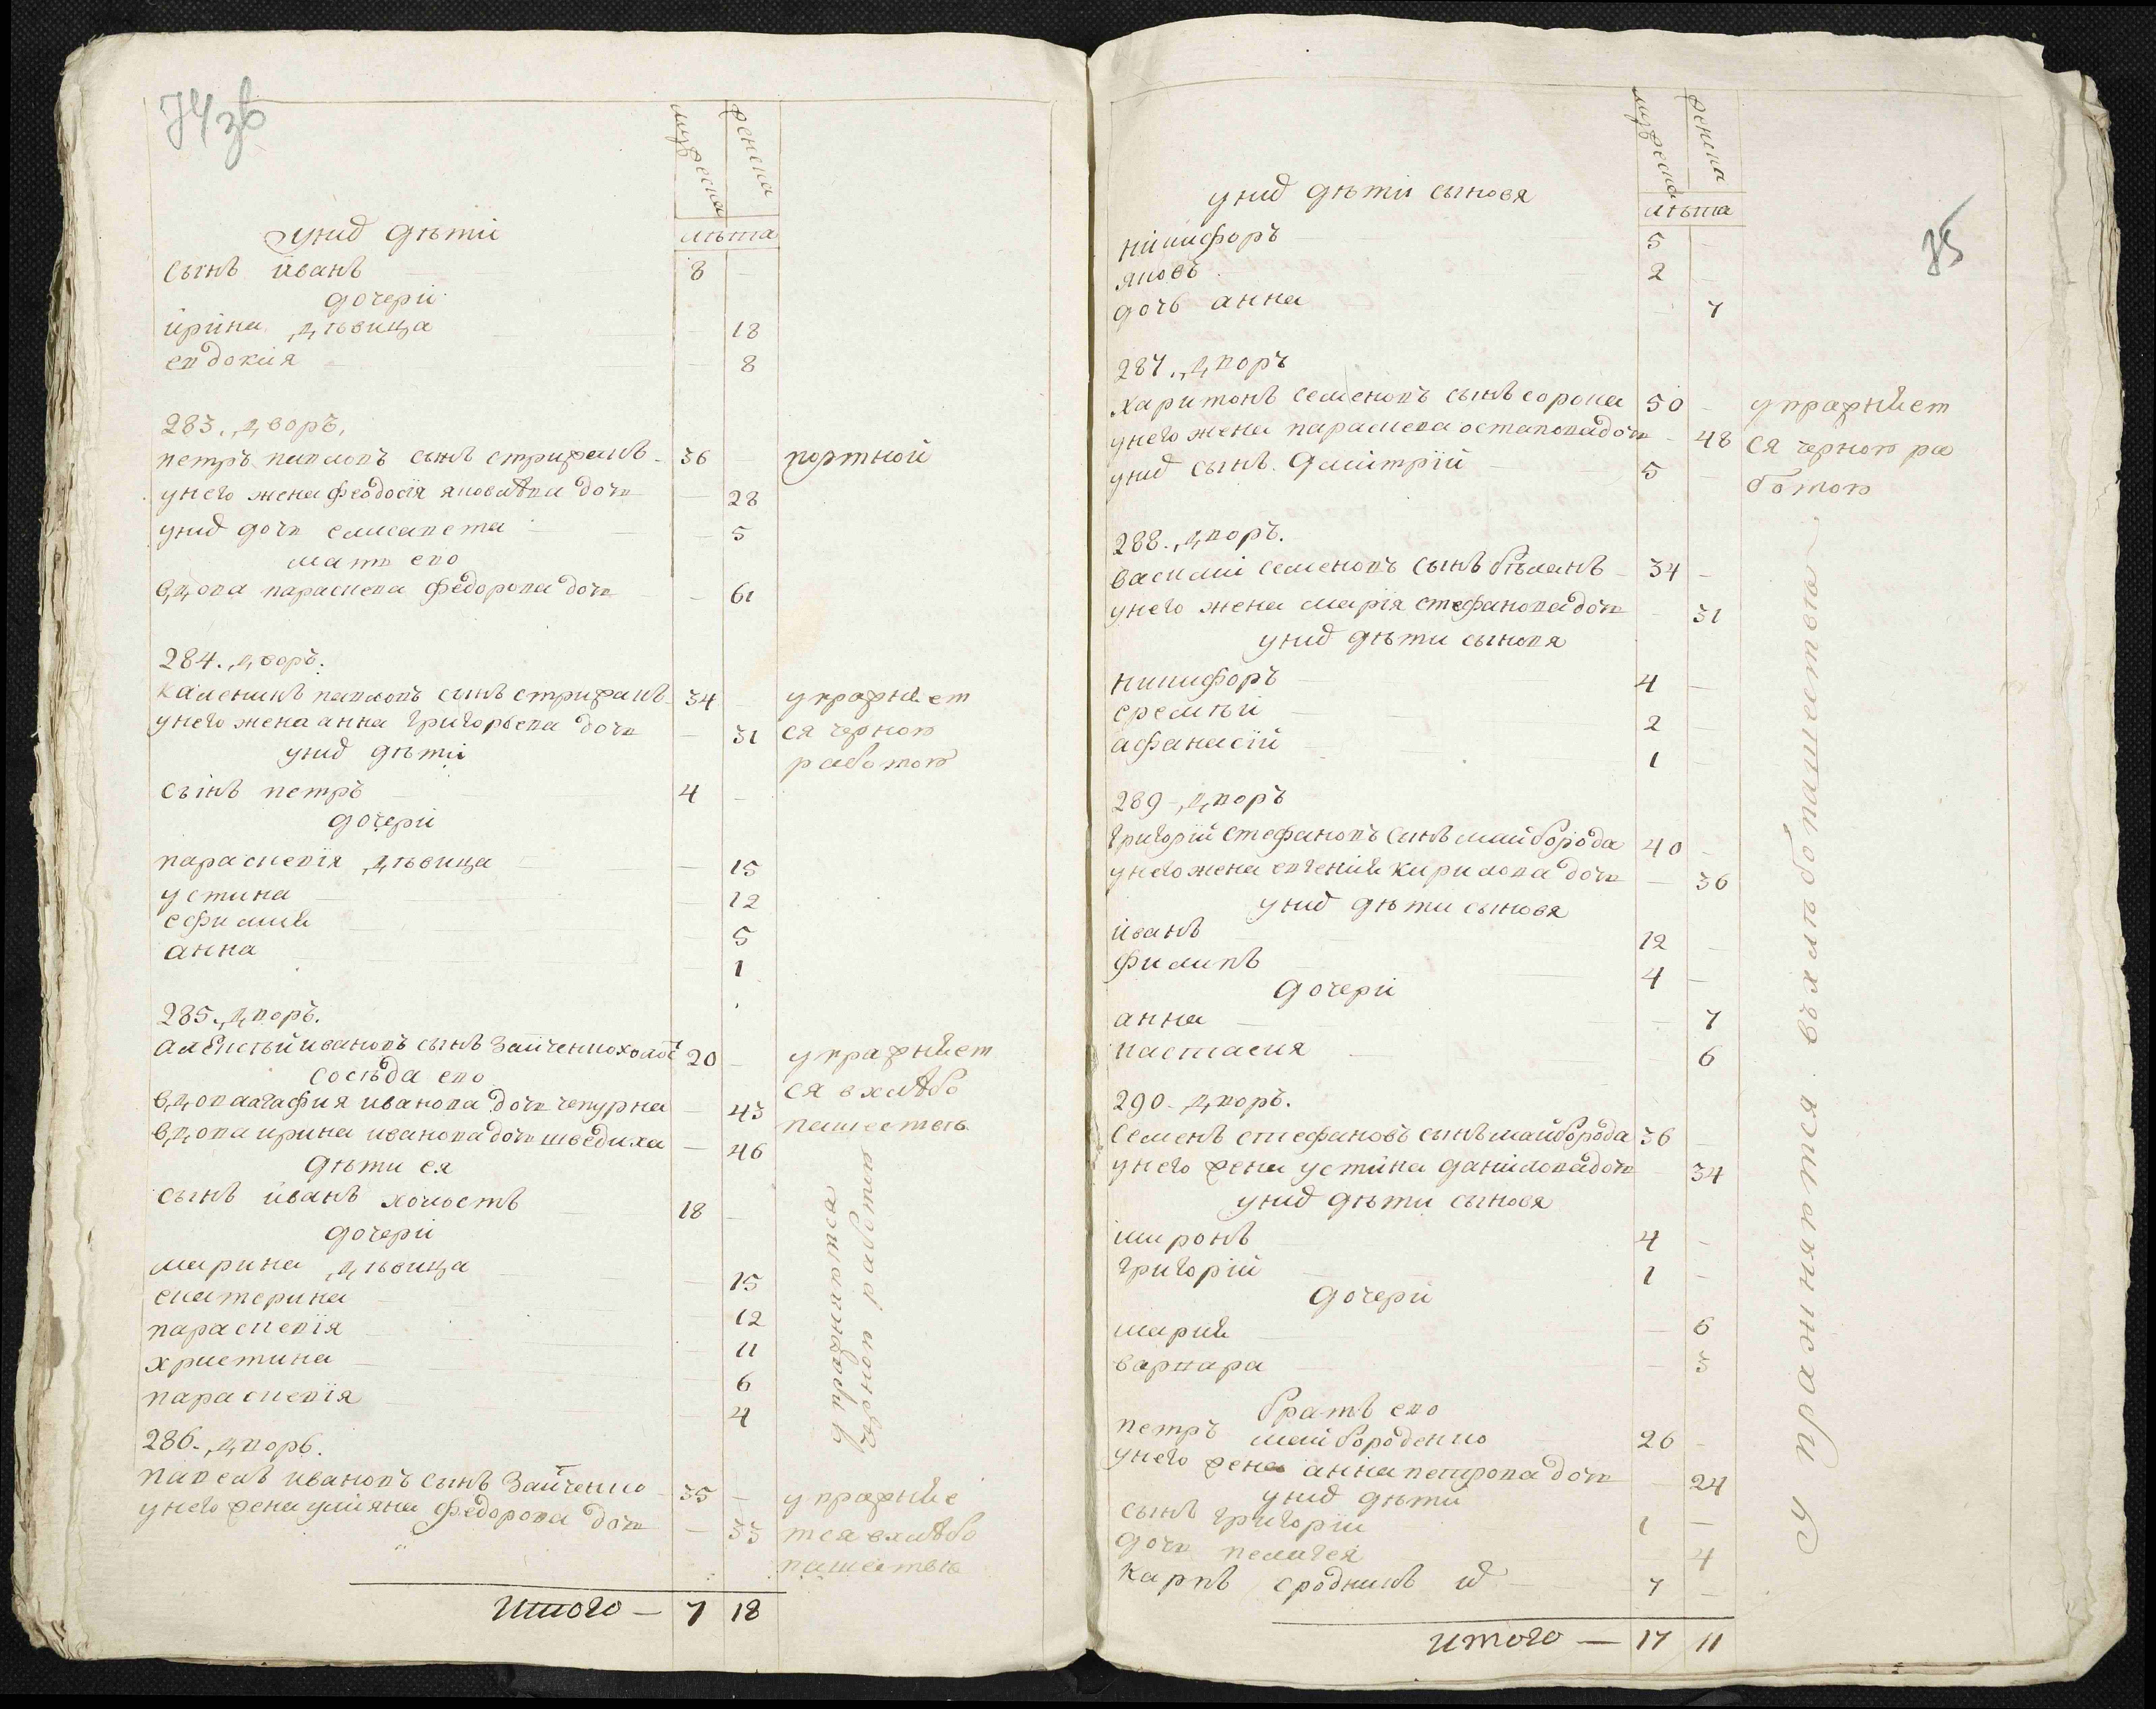 74 зв
мужеска
женска
лѣта
у них дѣти
сынъ иванъ 8 —
дочери
ирина дѣвица — 18
евдокия — 8
283. дворъ.
петръ павловъ сынъ стрижакъ 36 — портной
у него жена феодосїя яковлѣва дочь — 28
у них дочь елисавета — 5
мать ево
вдова параскева федорова дочь — 61
284. дворъ.
павловъ сынъ стрижакъ 34 — упражнѧет
у него жена анна григорьева дочь — 31 ся черною
у них дѣти
работою
сынъ петръ 4 —
дочери
параскевїя дѣвица — 15
устина — 12
ефимиѧ 5
анна — 1
285. дворъ.
алексѣй ивановъ сынъ заиченко холост 20 — упражнѧет
сосѣда ево
ся в хлѣбо
вдова агафия иванова дочь чепурна — 43
пашестве
вдова ирина иванова дочь шведиха — 46
дѣти ея
сынъ иванъ холостъ 18 —
дочери
марина дѣвица — 15
екатерина — 12
параскевїя — 11
христина — 6
параскевїя 4
упражняются
черною работою
286. дворъ.
павелъ ивановъ сынъ заиченко 35 — упражнѧе
у него жена улияна федорова дочь — 33 тся в хлѣбо
пашестве
Итого — 7 18
75
мужеска
женска
лѣта
у них дѣти сыновя
никифоръ 5 —
яковъ 2 —
дочь анна — 7
287. дворъ
харитонъ семеновъ сынъ сорока 50 — упражнѧет
у него жена параскева остапова дочь — 48 ся черною ра
у них сынъ дмитрїй 5 —
ботою
288. дворъ.
василий семеновъ сынъ бѣланъ 34 —
у него жена марїя стефанова дочь — 31
у них дѣти сыновя
никифоръ 4 —
еремѣй 2 —
афанасїй 1 —
289. дворъ
григорїй стефановъ сынъ майборода 40 —
у него жена евгениѧ кирилова дочь — 36
у них дѣти сыновя
иванъ 12 —
филипъ 4 —
дочери
анна — 7
настасия 6
290. дворъ.
семенъ стефановъ сынъ майборода 36 —
у него жена устина данилова дочь — 34
у них дѣти сыновя
миронъ 4 —
григорїй 1 —
дочери
мариѧ — 6
варвара — 3
братъ ево
петръ майбороденко 26 —
у него жена анна петрова дочь — 24
у них дѣти
сынъ григорїй 1 —
дочь пелагея 4
карпъ сродникъ их 7 —
Упражняются въ хлѣбопашествѣ
Итого — 17 11